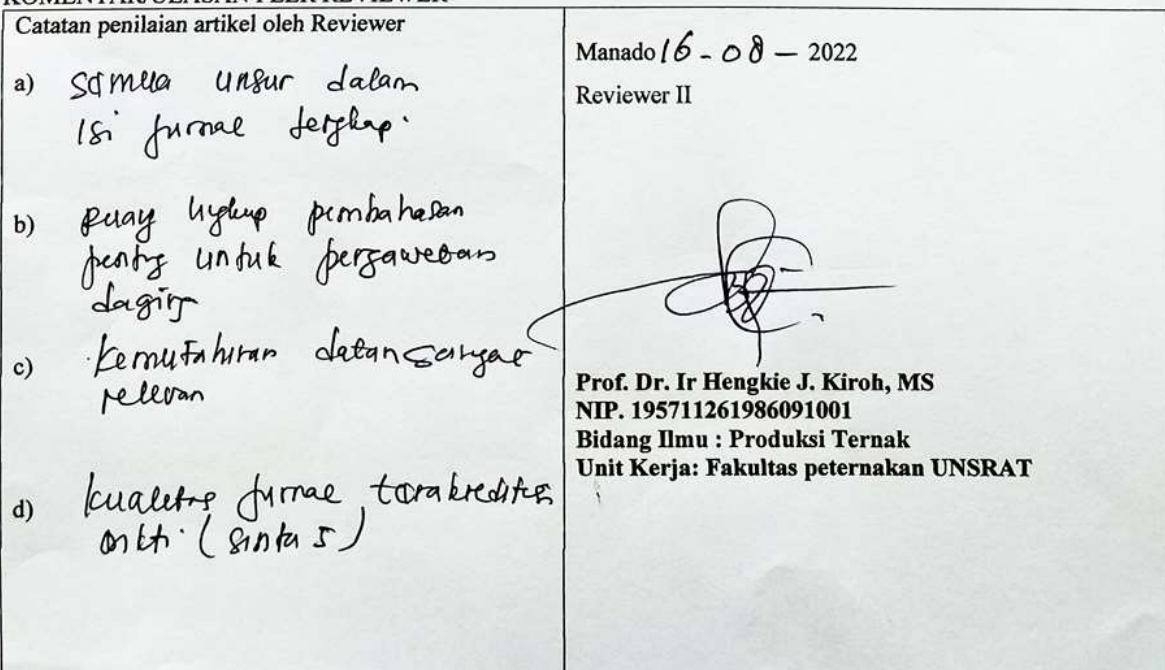 KOMENTAR/ULASAN PEER REVIEWER
Catatan penilaian artikel oleh Reviewer
a) semua unsur dalam
isi jurnal lengkap.
b) Ruang lingkup pembahasan
penting untuk pengawetan
daging
c) Kemutahiran data sangat
relevan
d) kualitas jurnal, terakreditas
(sinta 5)
Manado 16 - 08 - 2022
Reviewer II
Prof. Dr. Ir Hengkie J. Kiroh, MS
NIP. 195711261986091001
Bidang Ilmu : Produksi Ternak
Unit Kerja: Fakultas peternakan UNSRAT